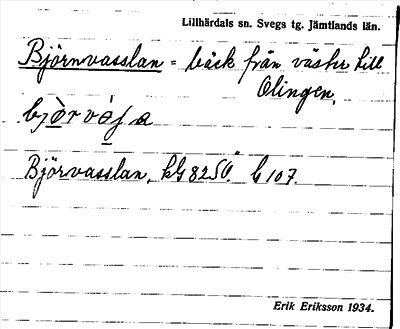 Lillhärdals sn. Svegs tg. Jämtlands län.
Björnvasslan = bäck från väster till
Olingen.
Björvasslan, kG 8250. b 107.
Erik Eriksson 1934.